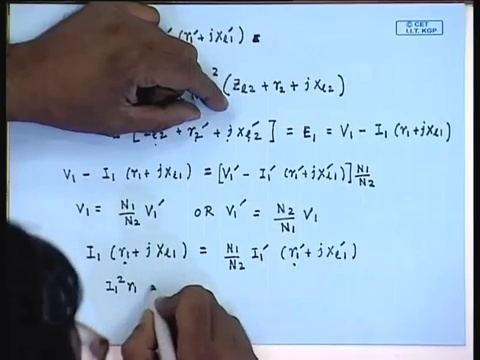 © CET
I.I.T. KGP
′ (r₁′ + j x_{l1}′) =
² (Z_{l2} + r₂ + j x_{l2})
= [Z_{l2}′ + r₂′ + j x_{l2}′] = E₁ = V₁ - I₁ (r₁ + j x_{l1})
V₁ - I₁ (r₁ + j x_{l1}) = [V₁′ - I₁′ (r₁′ + j x_{l1}′)] N₁/N₂
V₁ = N₁/N₂ V₁′ OR V₁′ = N₂/N₁ V₁
I₁ (r₁ + j x_{l1}) = N₁/N₂ I₁′ (r₁′ + j x_{l1}′)
I₁² r₁